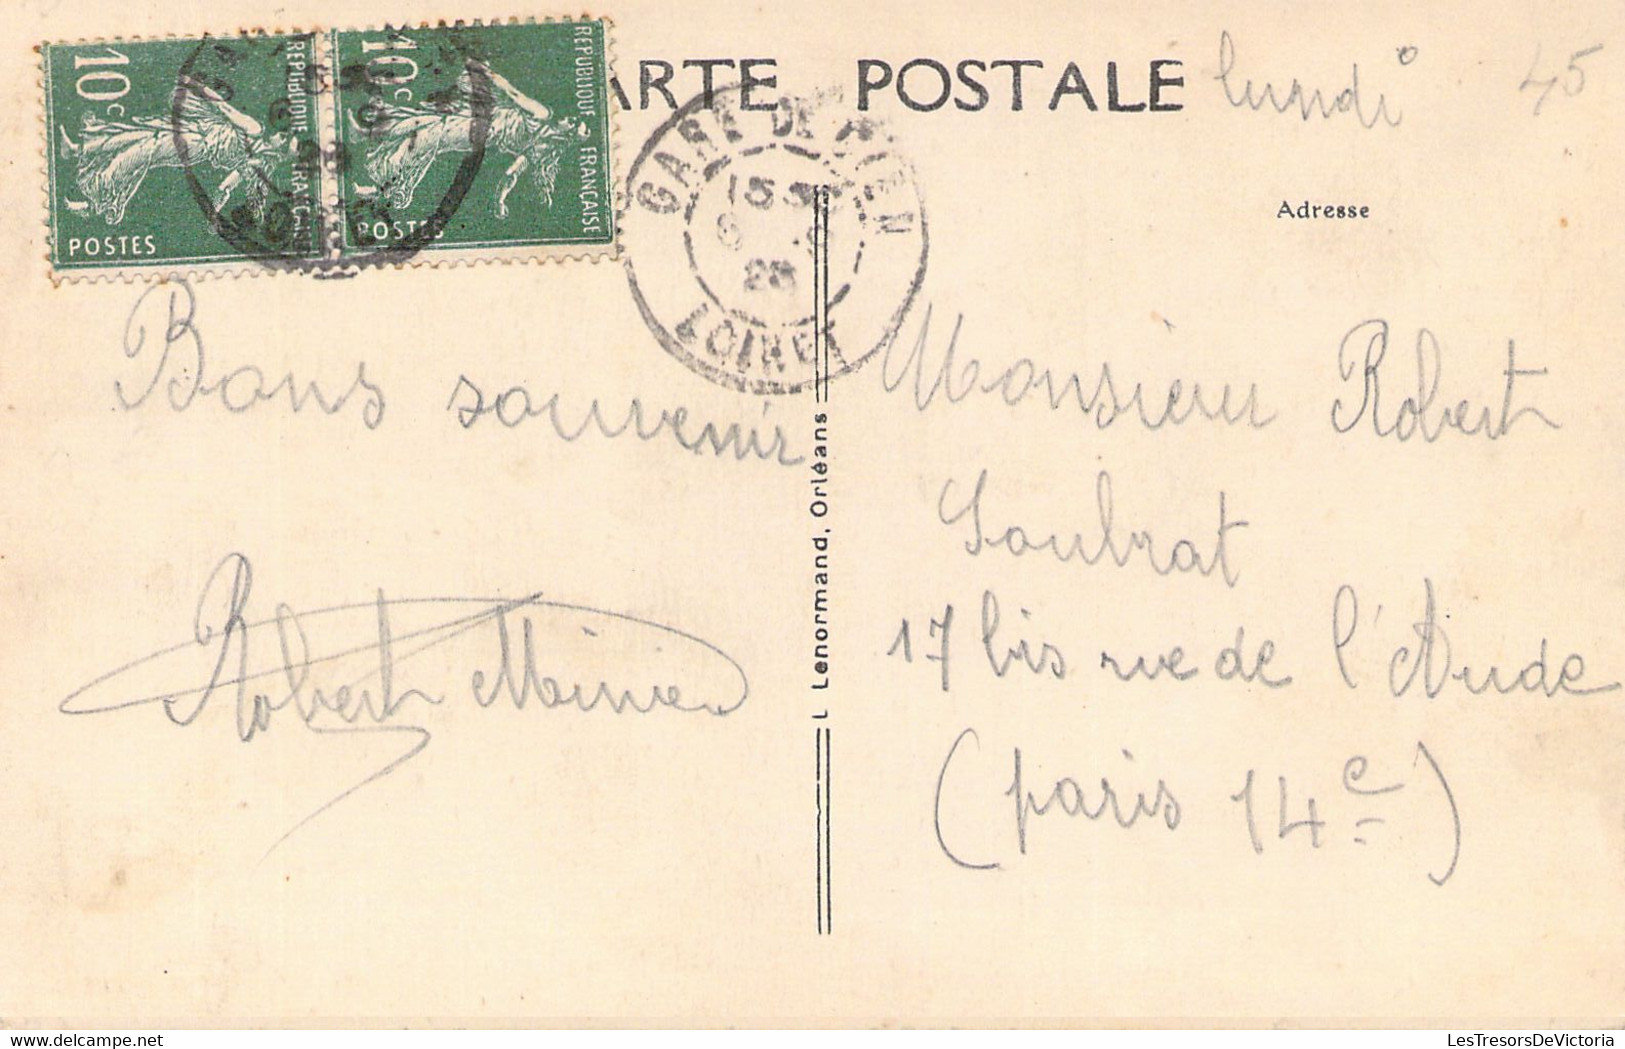 10c
REPUBLIQUE FRANÇAISE
POSTES
10c
REPUBLIQUE FRANÇAISE
POSTES
ARTE POSTALE
lundi
45
GARE DE GIEN
15
25
LOIRET
Adresse
Bons souvenir
Robert
Monsieur Robert
Soubrat
17 bis rue de l'Aude
(paris 14e)
L Lenormand, Orléans
LesTresorsDeVictoria